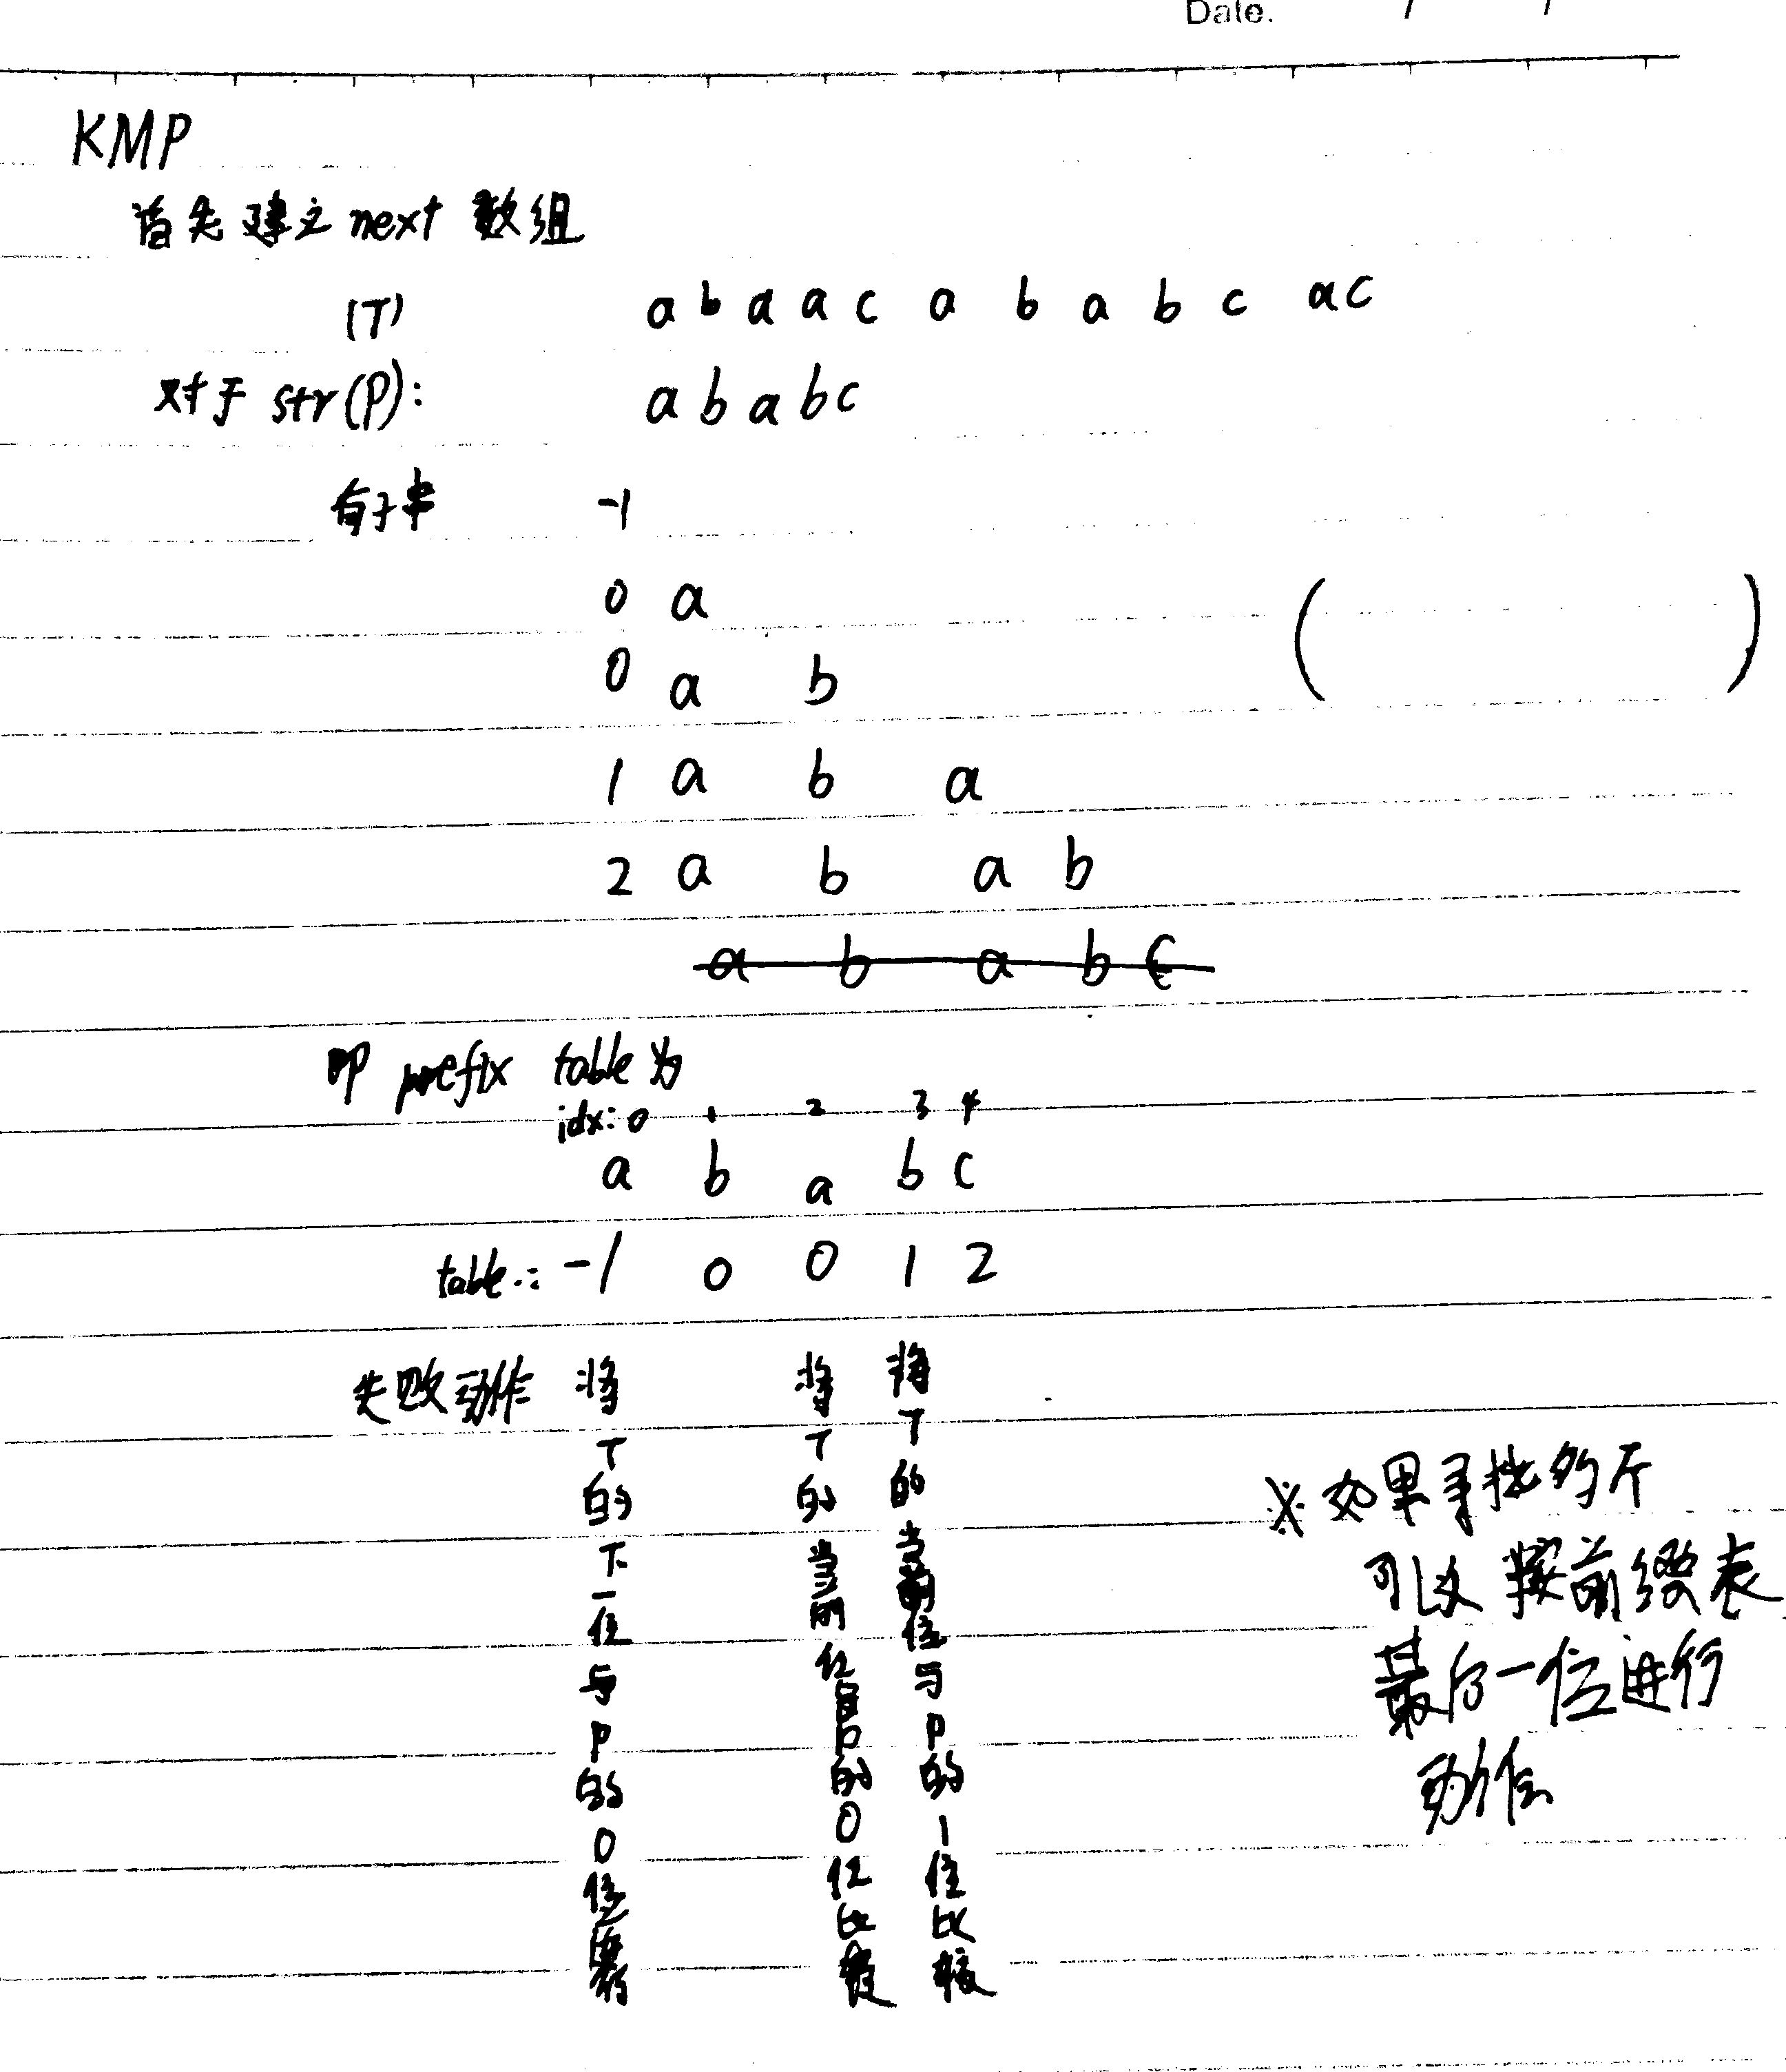 Date. / /
KMP
首先建立 next 数组
(T) a b a a c a b a b c a c
对于 str(P): a b a b c
有子串 -1
0 a
0 a b
1 a b a
2 a b a b
a b a b c
即 prefix table 为
idx: 0 1 2 3 4
a b a b c
table: -1 0 0 1 2
失败动作
将T的下一位与P的0位
将T的当前位与P的0位比较
将T的当前位与P的1位比较
※如果寻找的
可以按前缀表
最后一位进行
动作